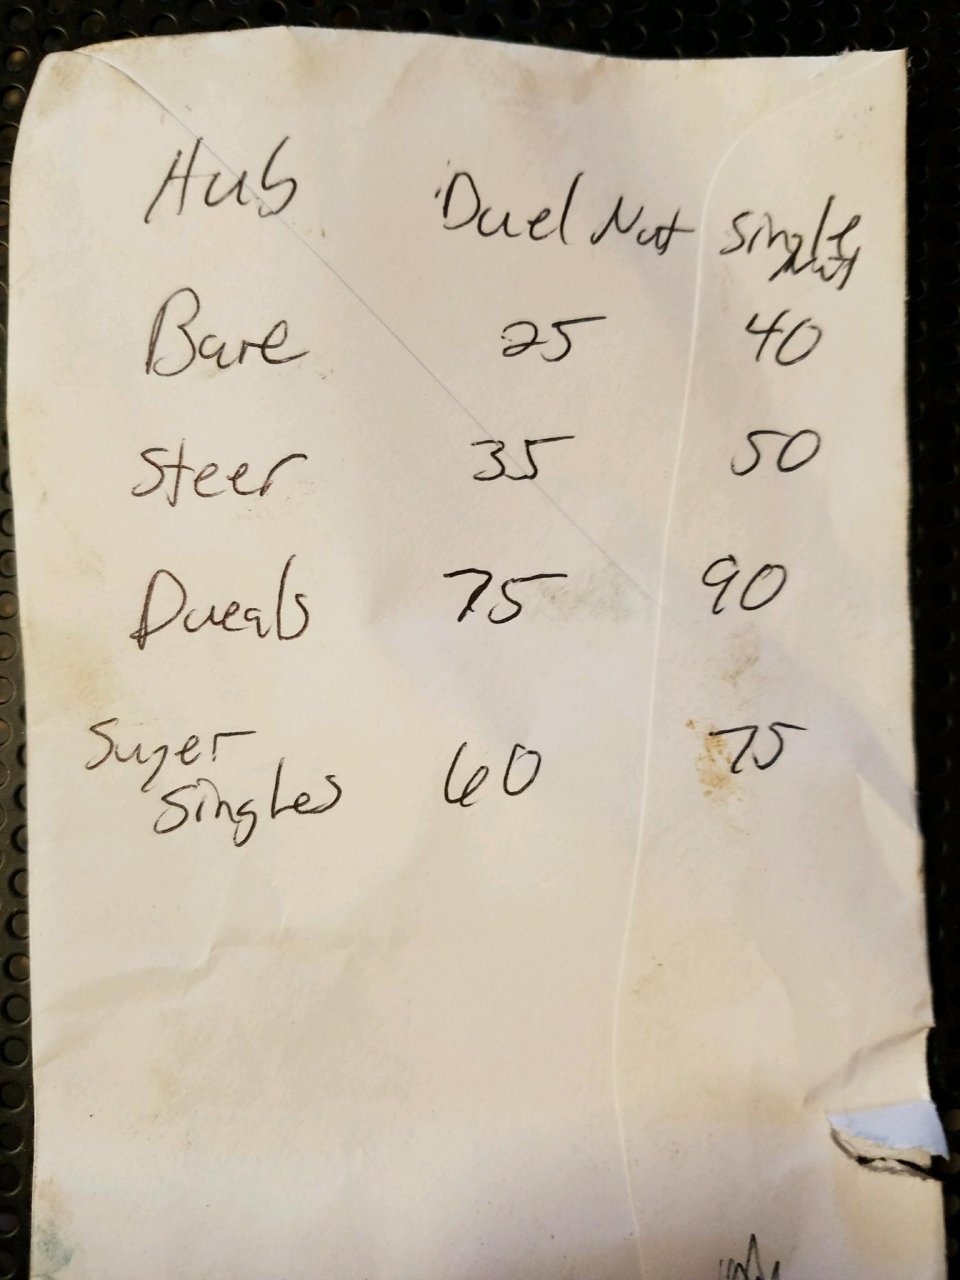 Hub Duel Nut Single
Nut
Bare 25 40
Steer 35 50
Dueals 75 90
Super 75
Singles 60